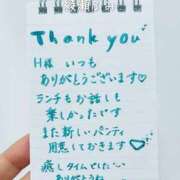 Thank you
H様 いつも
ありがとうございます♡
ランチもお話しも
楽しかったです
また新しいパンティ
用意しておきます
癒しタイムでした
ありがとうね